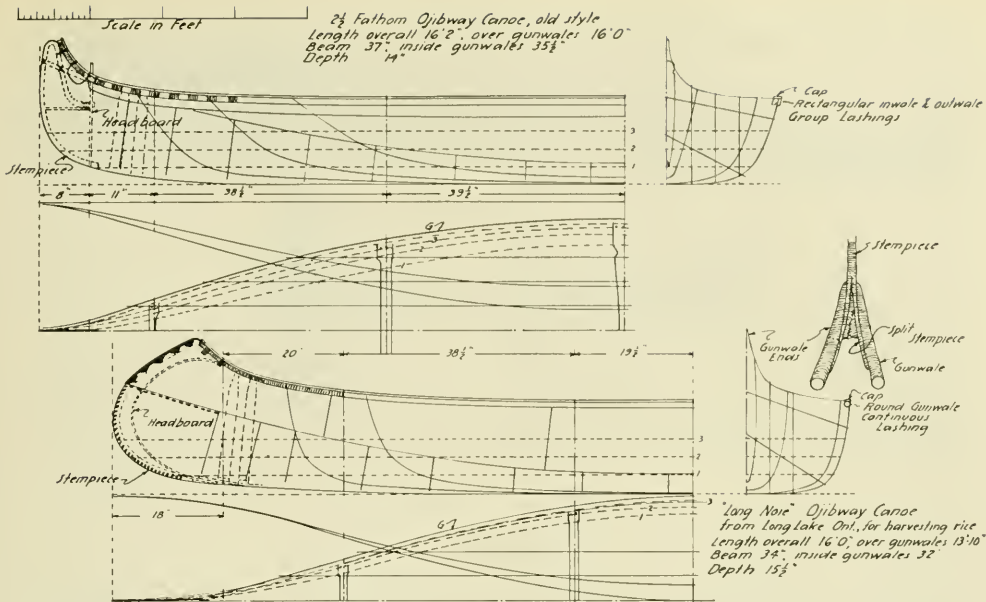 Scale in Feet
2½ Fathom Ojibway Canoe, old style
Length overall 16'2", over gunwales 16'0"
Beam 37", inside gunwales 35½"
Depth 14"
Headboard
Stempiece
3
2
1
8"
11"
38½"
39½"
Cap
Rectangular inwale & outwale
Group Lashings
G
3
2
1
Stempiece
Split
Stempiece
Gunwale
Ends
Gunwale
20"
38½"
19½"
Headboard
Stempiece
3
2
1
18"
Cap
Round Gunwale
Continuous
Lashing
G
3
2
1
"Long Nose" Ojibway Canoe
from Long Lake Ont., for harvesting rice
Length overall 16'0", over gunwales 13'10"
Beam 34", inside gunwales 32"
Depth 15½"